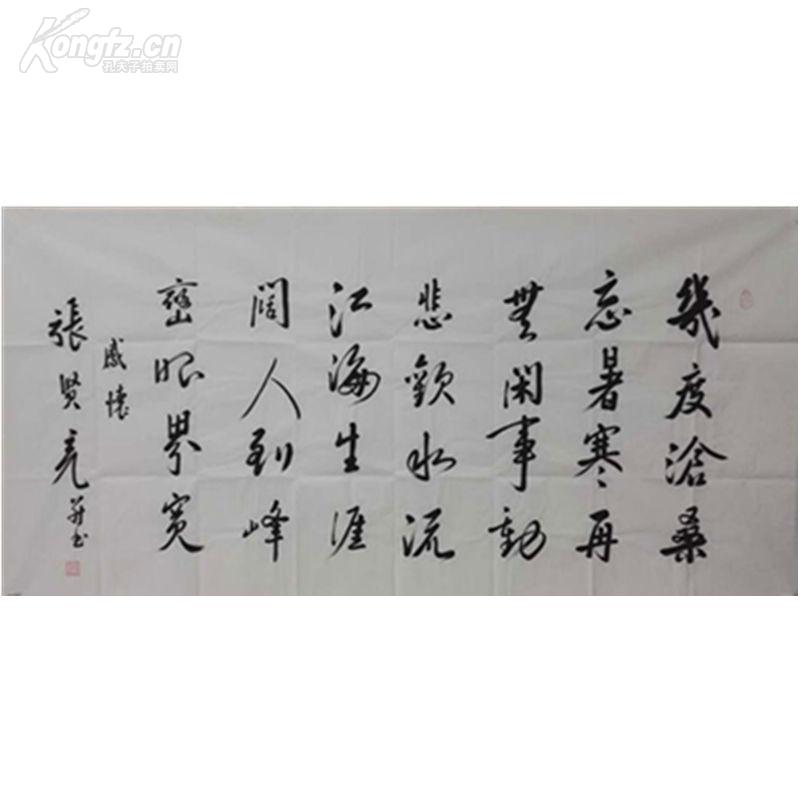 Kongfz.cn
孔夫子拍卖网
幾度滄桑
忘暑寒再
無閑事動
悲歡水流
江海生涯
闊人到峰
巒眼界寬
感懷
張賢亮并书